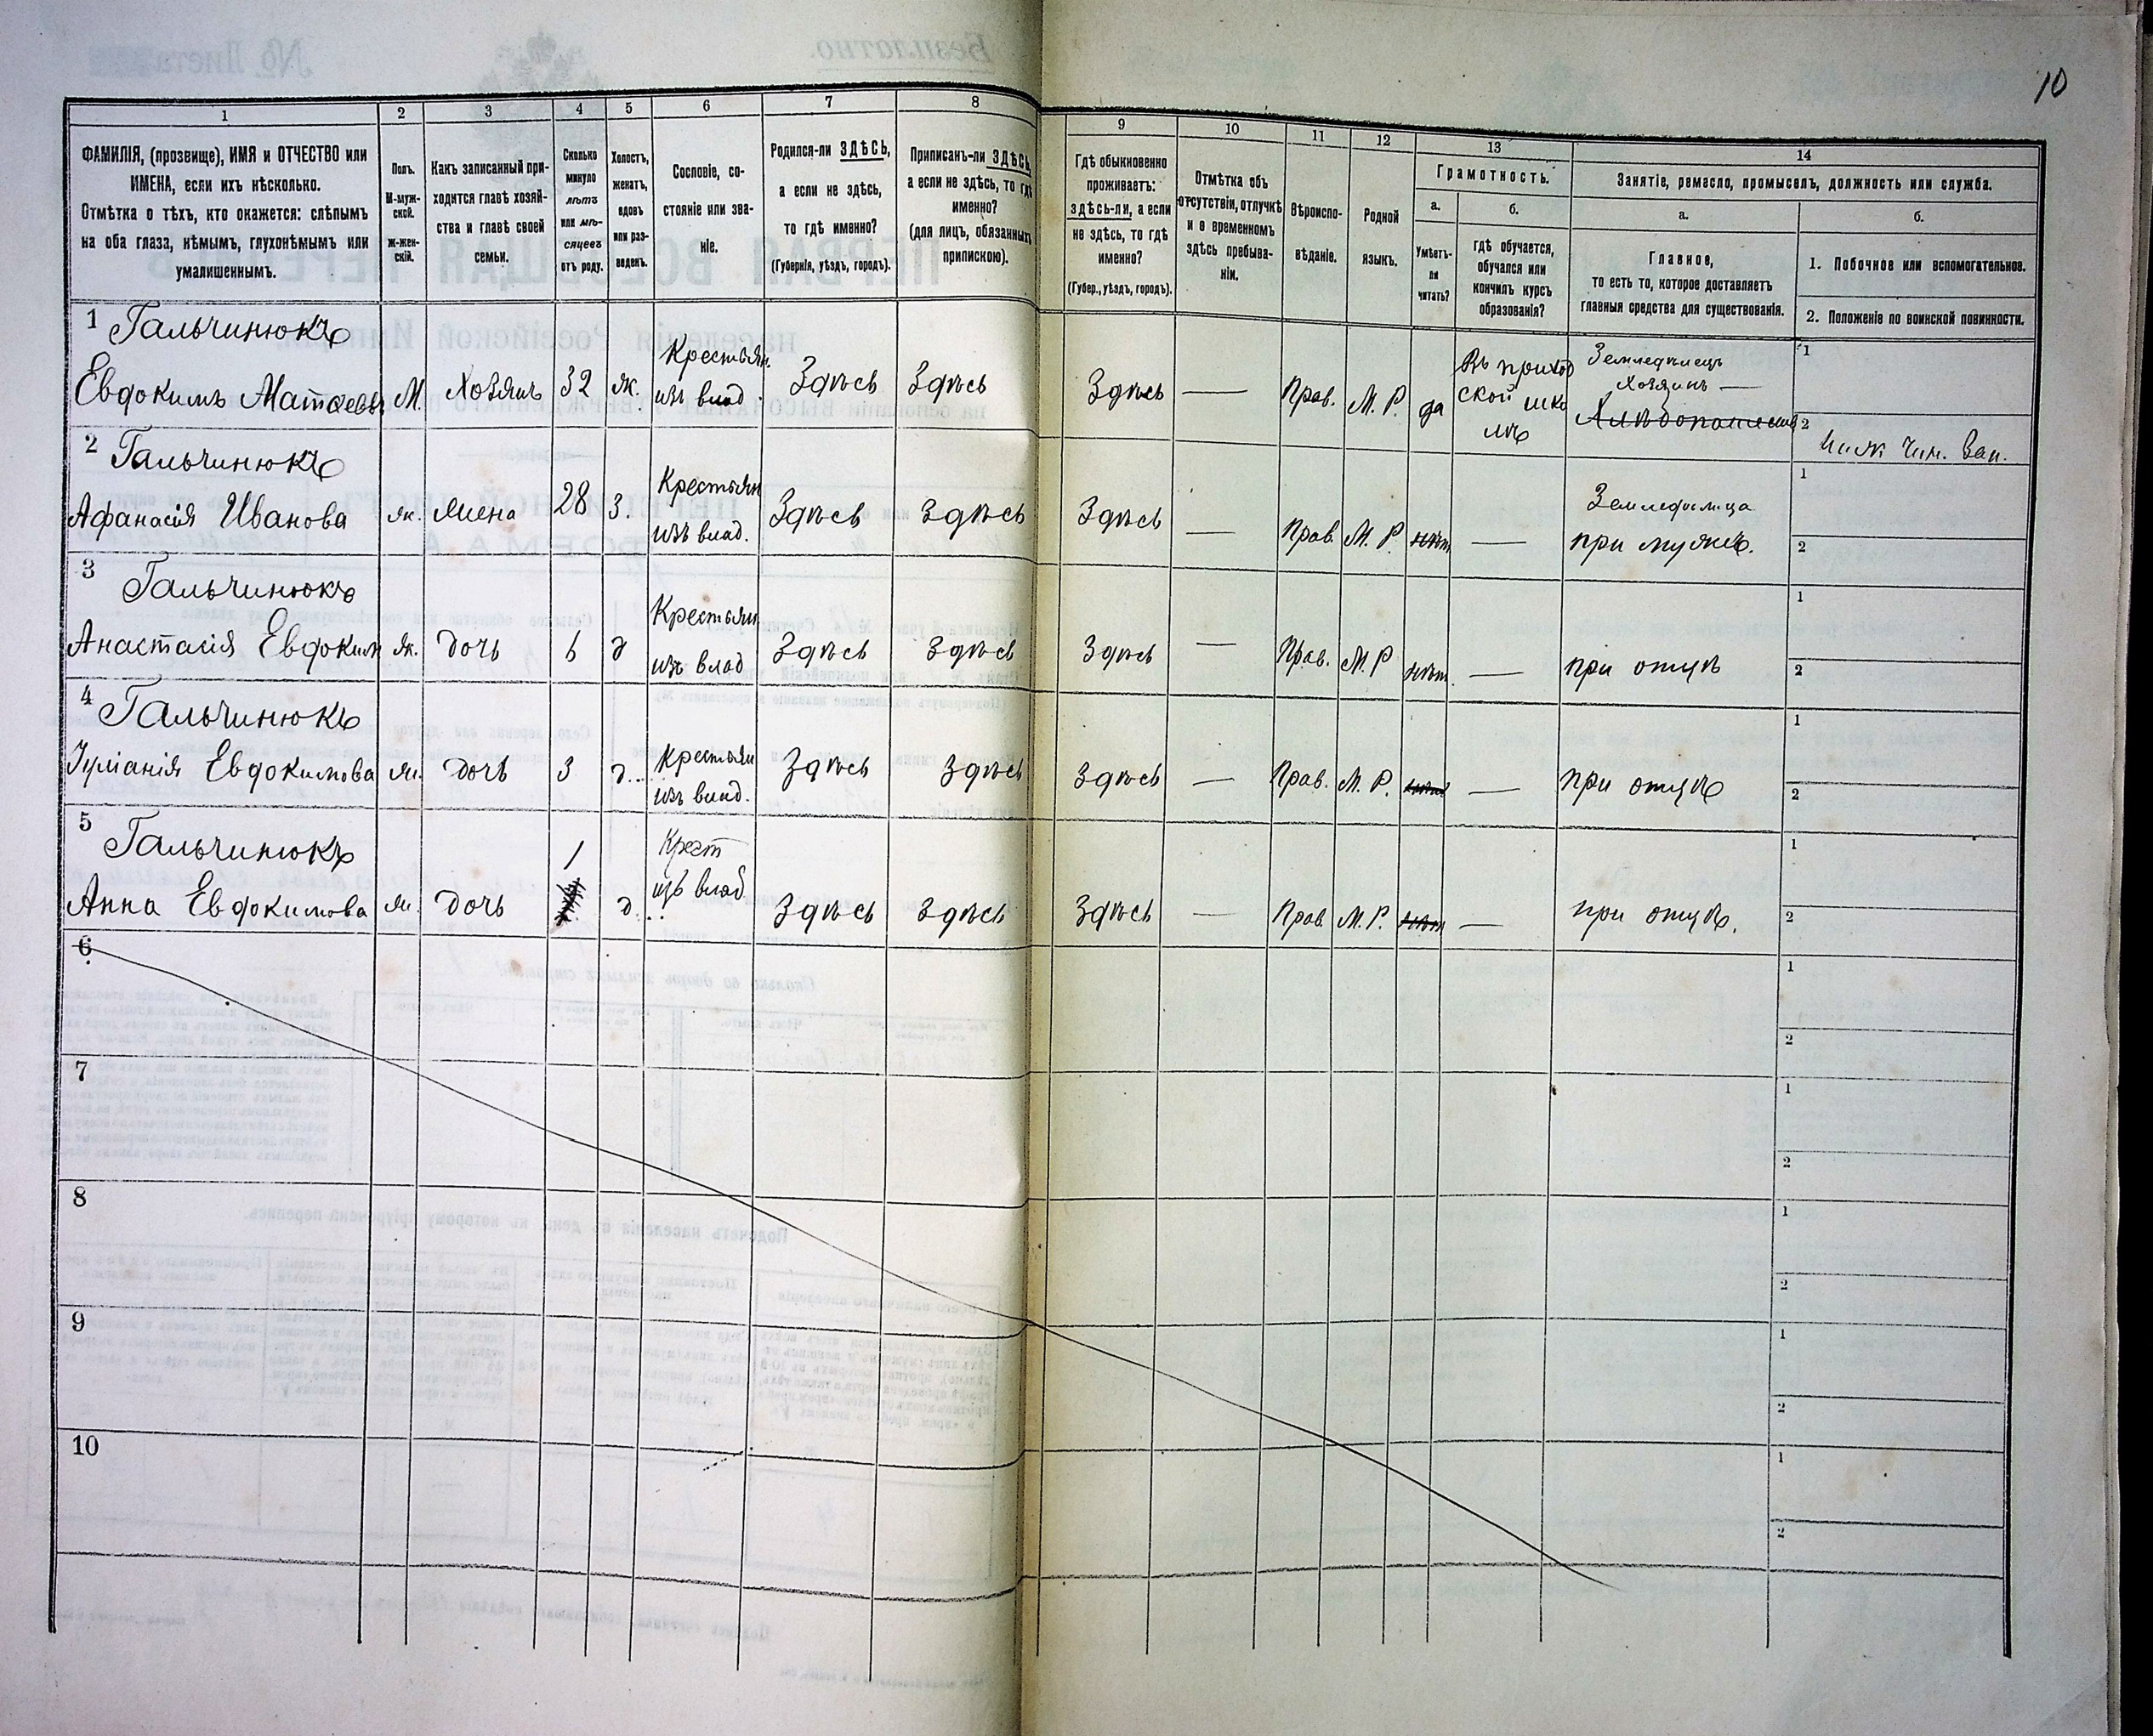 10
1
2
3
4
5
6
7
8
9
10
11
12
13
14
ФАМИЛІЯ, (прозвище), ИМЯ и ОТЧЕСТВО или
ИМЕНА, если ихъ нѣсколько.
Отмѣтка о тѣхъ, кто окажется: слѣпымъ
на оба глаза, нѣмымъ, глухонѣмымъ или
умалишеннымъ.
Полъ.
М-муж-
ской.
Ж-жен-
скій.
Какъ записанный при-
ходится главѣ хозяй-
ства и главѣ своей
семьи.
Сколько
минуло
лѣтъ
или мѣ-
сяцевъ
отъ роду.
Холостъ,
женатъ,
вдовъ
или раз-
веденъ.
Сословіе, со-
стояніе или зва-
ніе.
Родился-ли ЗДѢСЬ,
а если не здѣсь,
то гдѣ именно?
(Губернія, уѣздъ, городъ).
Приписанъ-ли ЗДѢСЬ,
а если не здѣсь, то гдѣ
именно?
(для лицъ, обязанныхъ
припискою).
Гдѣ обыкновенно
проживаетъ:
здѣсь-ли, а если
не здѣсь, то гдѣ
именно?
(Губер., уѣздъ, городъ).
Отмѣтка объ
отсутствіи, отлучкѣ
и о временномъ
здѣсь пребыва-
ніи.
Вѣроиспо-
вѣданіе.
Родной
языкъ.
Грамотность.
а.
Умѣетъ-
ли
читать?
б.
гдѣ обучается,
обучался или
кончилъ курсъ
образованія?
Занятіе, ремесло, промыселъ, должность или служба.
а.
Главное,
то есть то, которое доставляетъ
главныя средства для существованія.
б.
1. Побочное или вспомогательное.
2. Положеніе по воинской повинности.
1 Гальчинюкъ
Евдокимъ Матвеевъ
М.
Хозяинъ
32
ж.
Крестьян.
изъ влад.
Здѣсь
Здѣсь
Здѣсь
—
Прав.
М. Р.
да
Въ приход
ской шко
лѣ
Земледѣлецъ
хозяинъ —
1
2
Ниж. Чин. Зап.
2 Гальчинюкъ
Афанасія Иванова
ж.
жена
28
З.
Крестьян
изъ влад.
Здѣсь
Здѣсь
Здѣсь
—
Прав.
М. Р.
нѣт
—
Земледѣлица
при мужѣ.
1
2
3
Гальчинюкъ
Анастасія Евдоким
ж.
дочь
6
д
Крестьян
изъ влад
Здѣсь
Здѣсь
Здѣсь
—
Прав.
М. Р
нѣт.
—
при отцѣ
1
2
4 Гальчинюкъ
Іуліанія Евдокимова
ж.
дочь
3
д.
Крестьян
изъ влад.
Здѣсь
Здѣсь
Здѣсь
—
Прав.
М. Р.
нѣт
—
при отцѣ
1
2
5 Гальчинюкъ
Анна Евдокимова
ж.
дочь
1
д.
Крест
изъ влад
Здѣсь
Здѣсь
Здѣсь
—
Прав.
М. Р.
нѣт
—
при отцѣ.
1
2
6
1
2
7
1
2
8
1
2
9
1
2
10
1
2